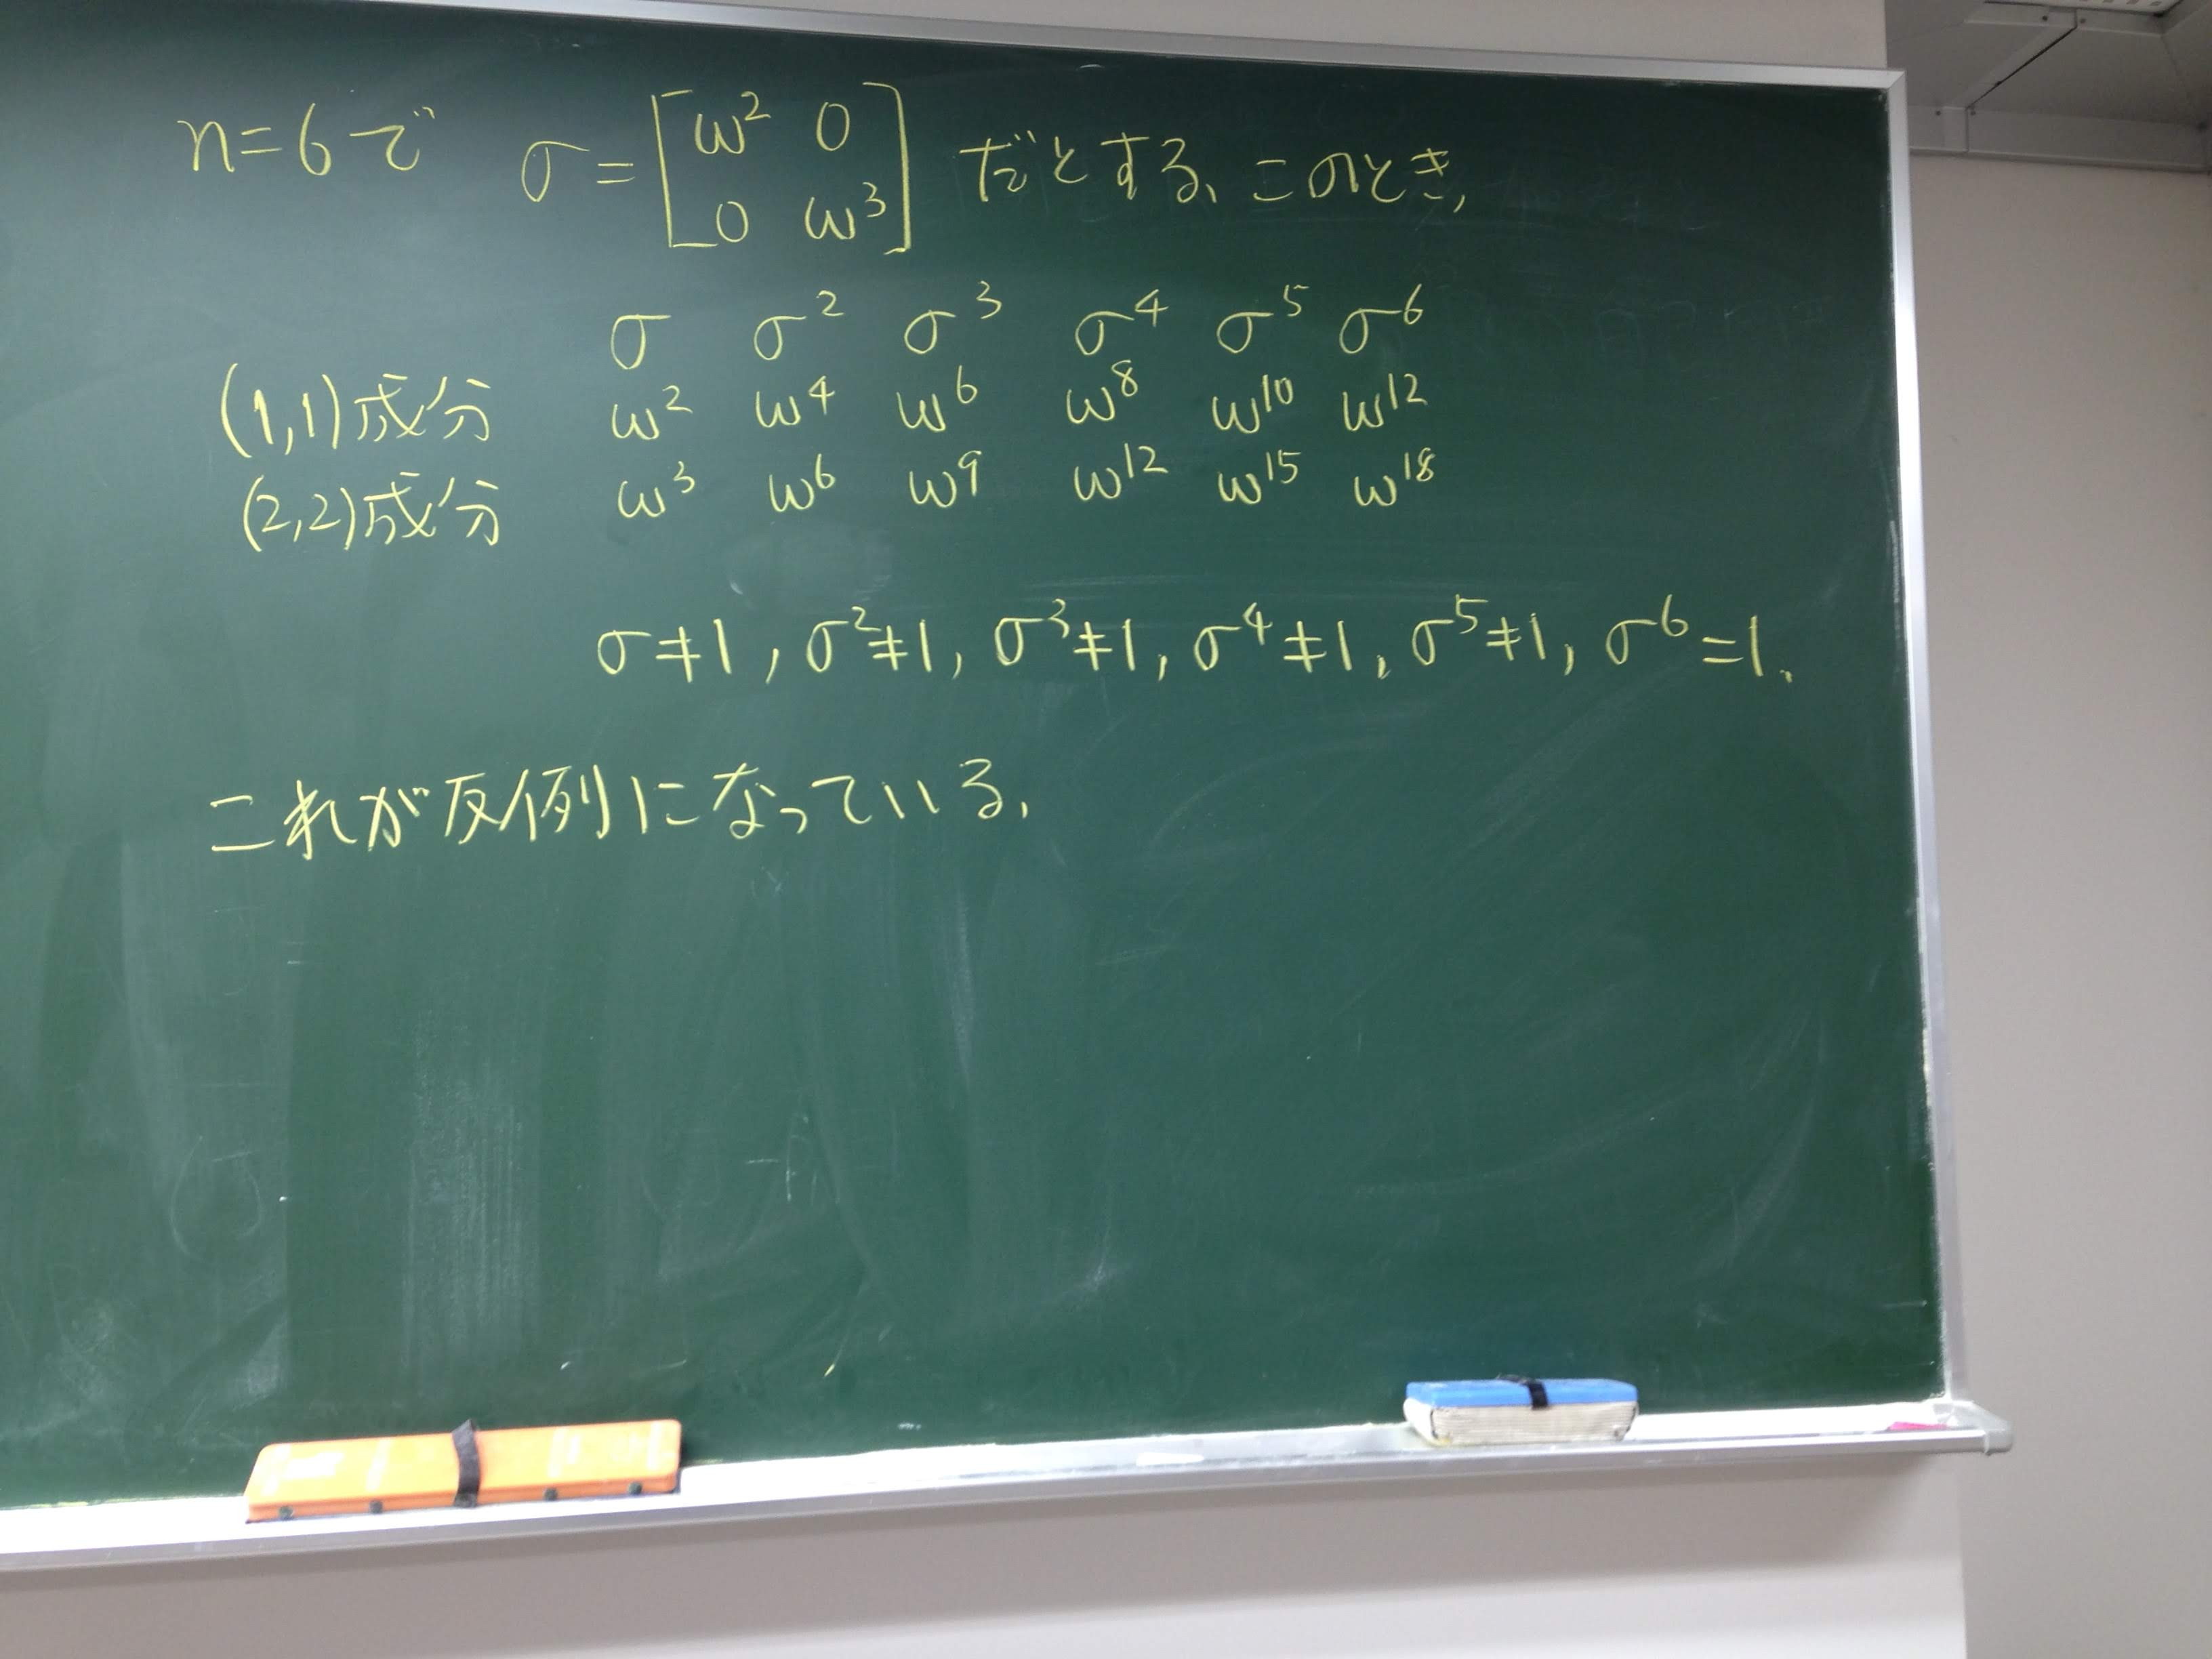 n=6で σ=[ω² 0 0 ω³] だとする、このとき、
σ σ² σ³ σ⁴ σ⁵ σ⁶
(1,1)成分 ω² ω⁴ ω⁶ ω⁸ ω¹⁰ ω¹²
(2,2)成分 ω³ ω⁶ ω⁹ ω¹² ω¹⁵ ω¹⁸
σ≠1, σ²≠1, σ³≠1, σ⁴≠1, σ⁵≠1, σ⁶=1、
これが反例になっている、